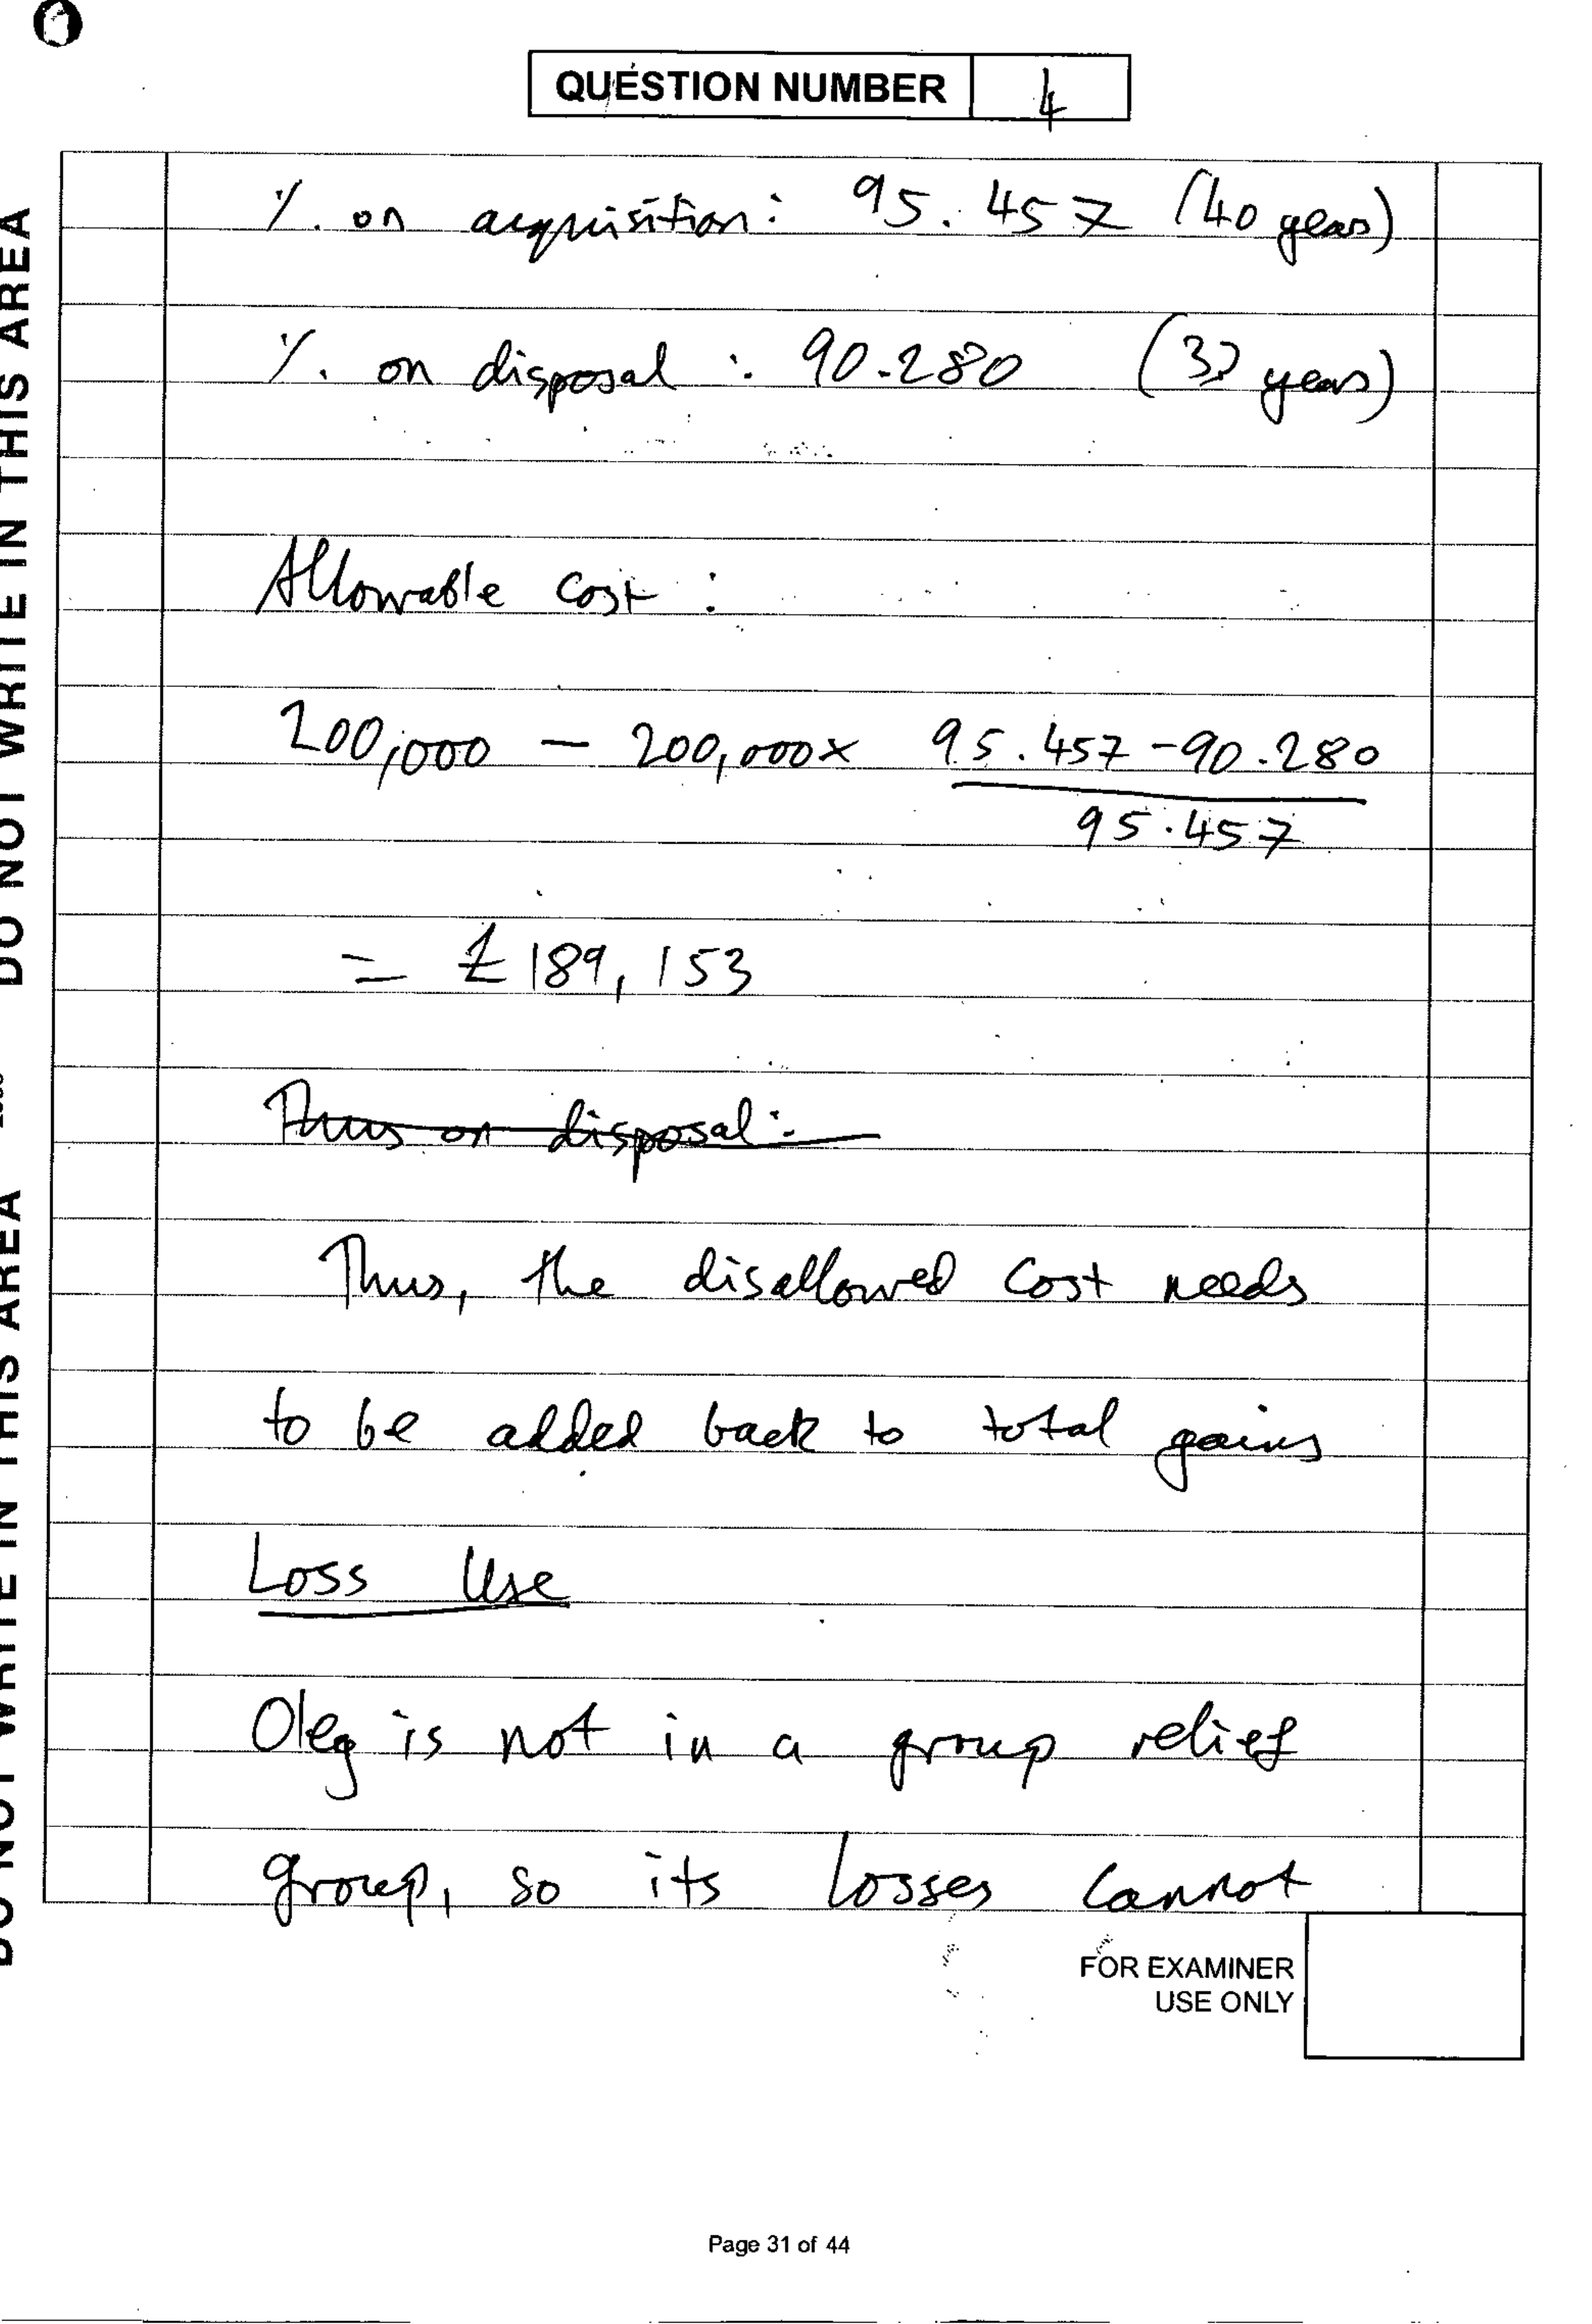 QUESTION NUMBER 4
% on acquisition: 95.457 (40 years)
% on disposal: 90.280 (33 years)
Allowable cost:
200,000 - 200,000 x 95.457-90.280
95.457
= £189,153
Thus on disposal:
Thus, the disallowed cost needs
to be added back to total gains
Loss Use
Oleg is not in a group relief
group, so its losses cannot
FOR EXAMINER
USE ONLY
Page 31 of 44
DO NOT WRITE IN THIS AREA
DO NOT WRITE IN THIS AREA